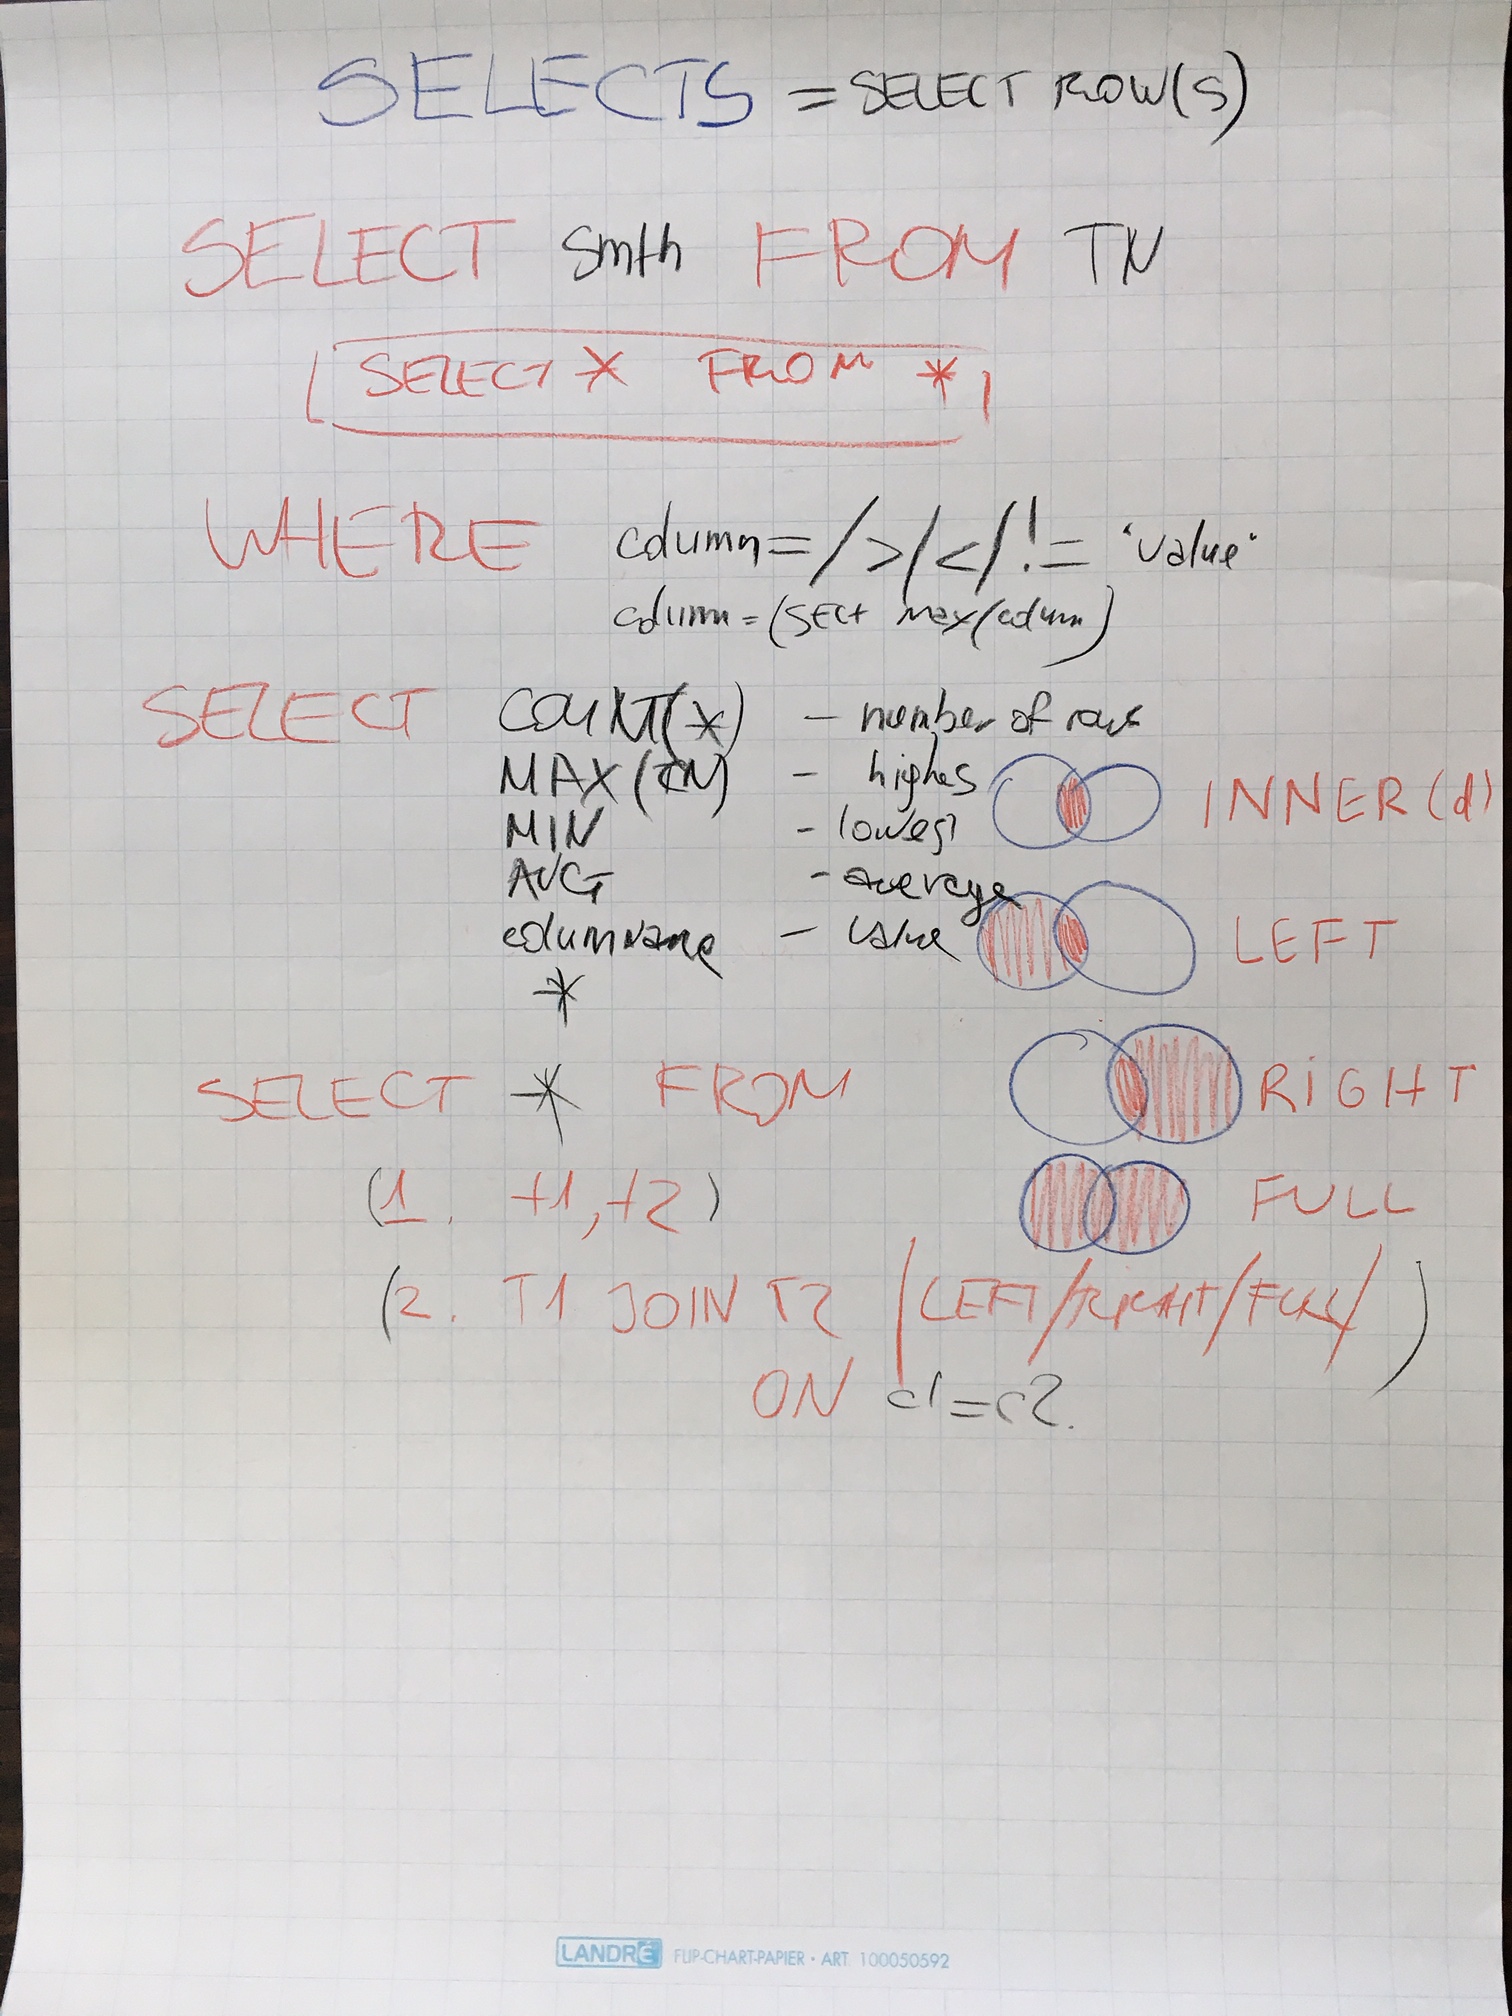 SELECTS = SELECT ROW(S)
SELECT smth FROM TN
SELECT * FROM *
WHERE column = / > / < / != 'value'
column = (SECt max(column)
SELECT COUNT(*) - number of rows
MAX(CN) - highes
MIN - lowest
AVG - average
columnname - value
*
INNER (d)
LEFT
RIGHT
FULL
SELECT * FROM
(1. t1, t2)
(2. T1 JOIN T2 / LEFT / RIGHT / FULL / )
ON c1 = c2.
LANDRÉ FLIP-CHART-PAPIER · ART. 100050592